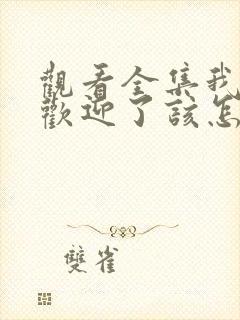 觀看全集我
歡迎了該怎
雙雀